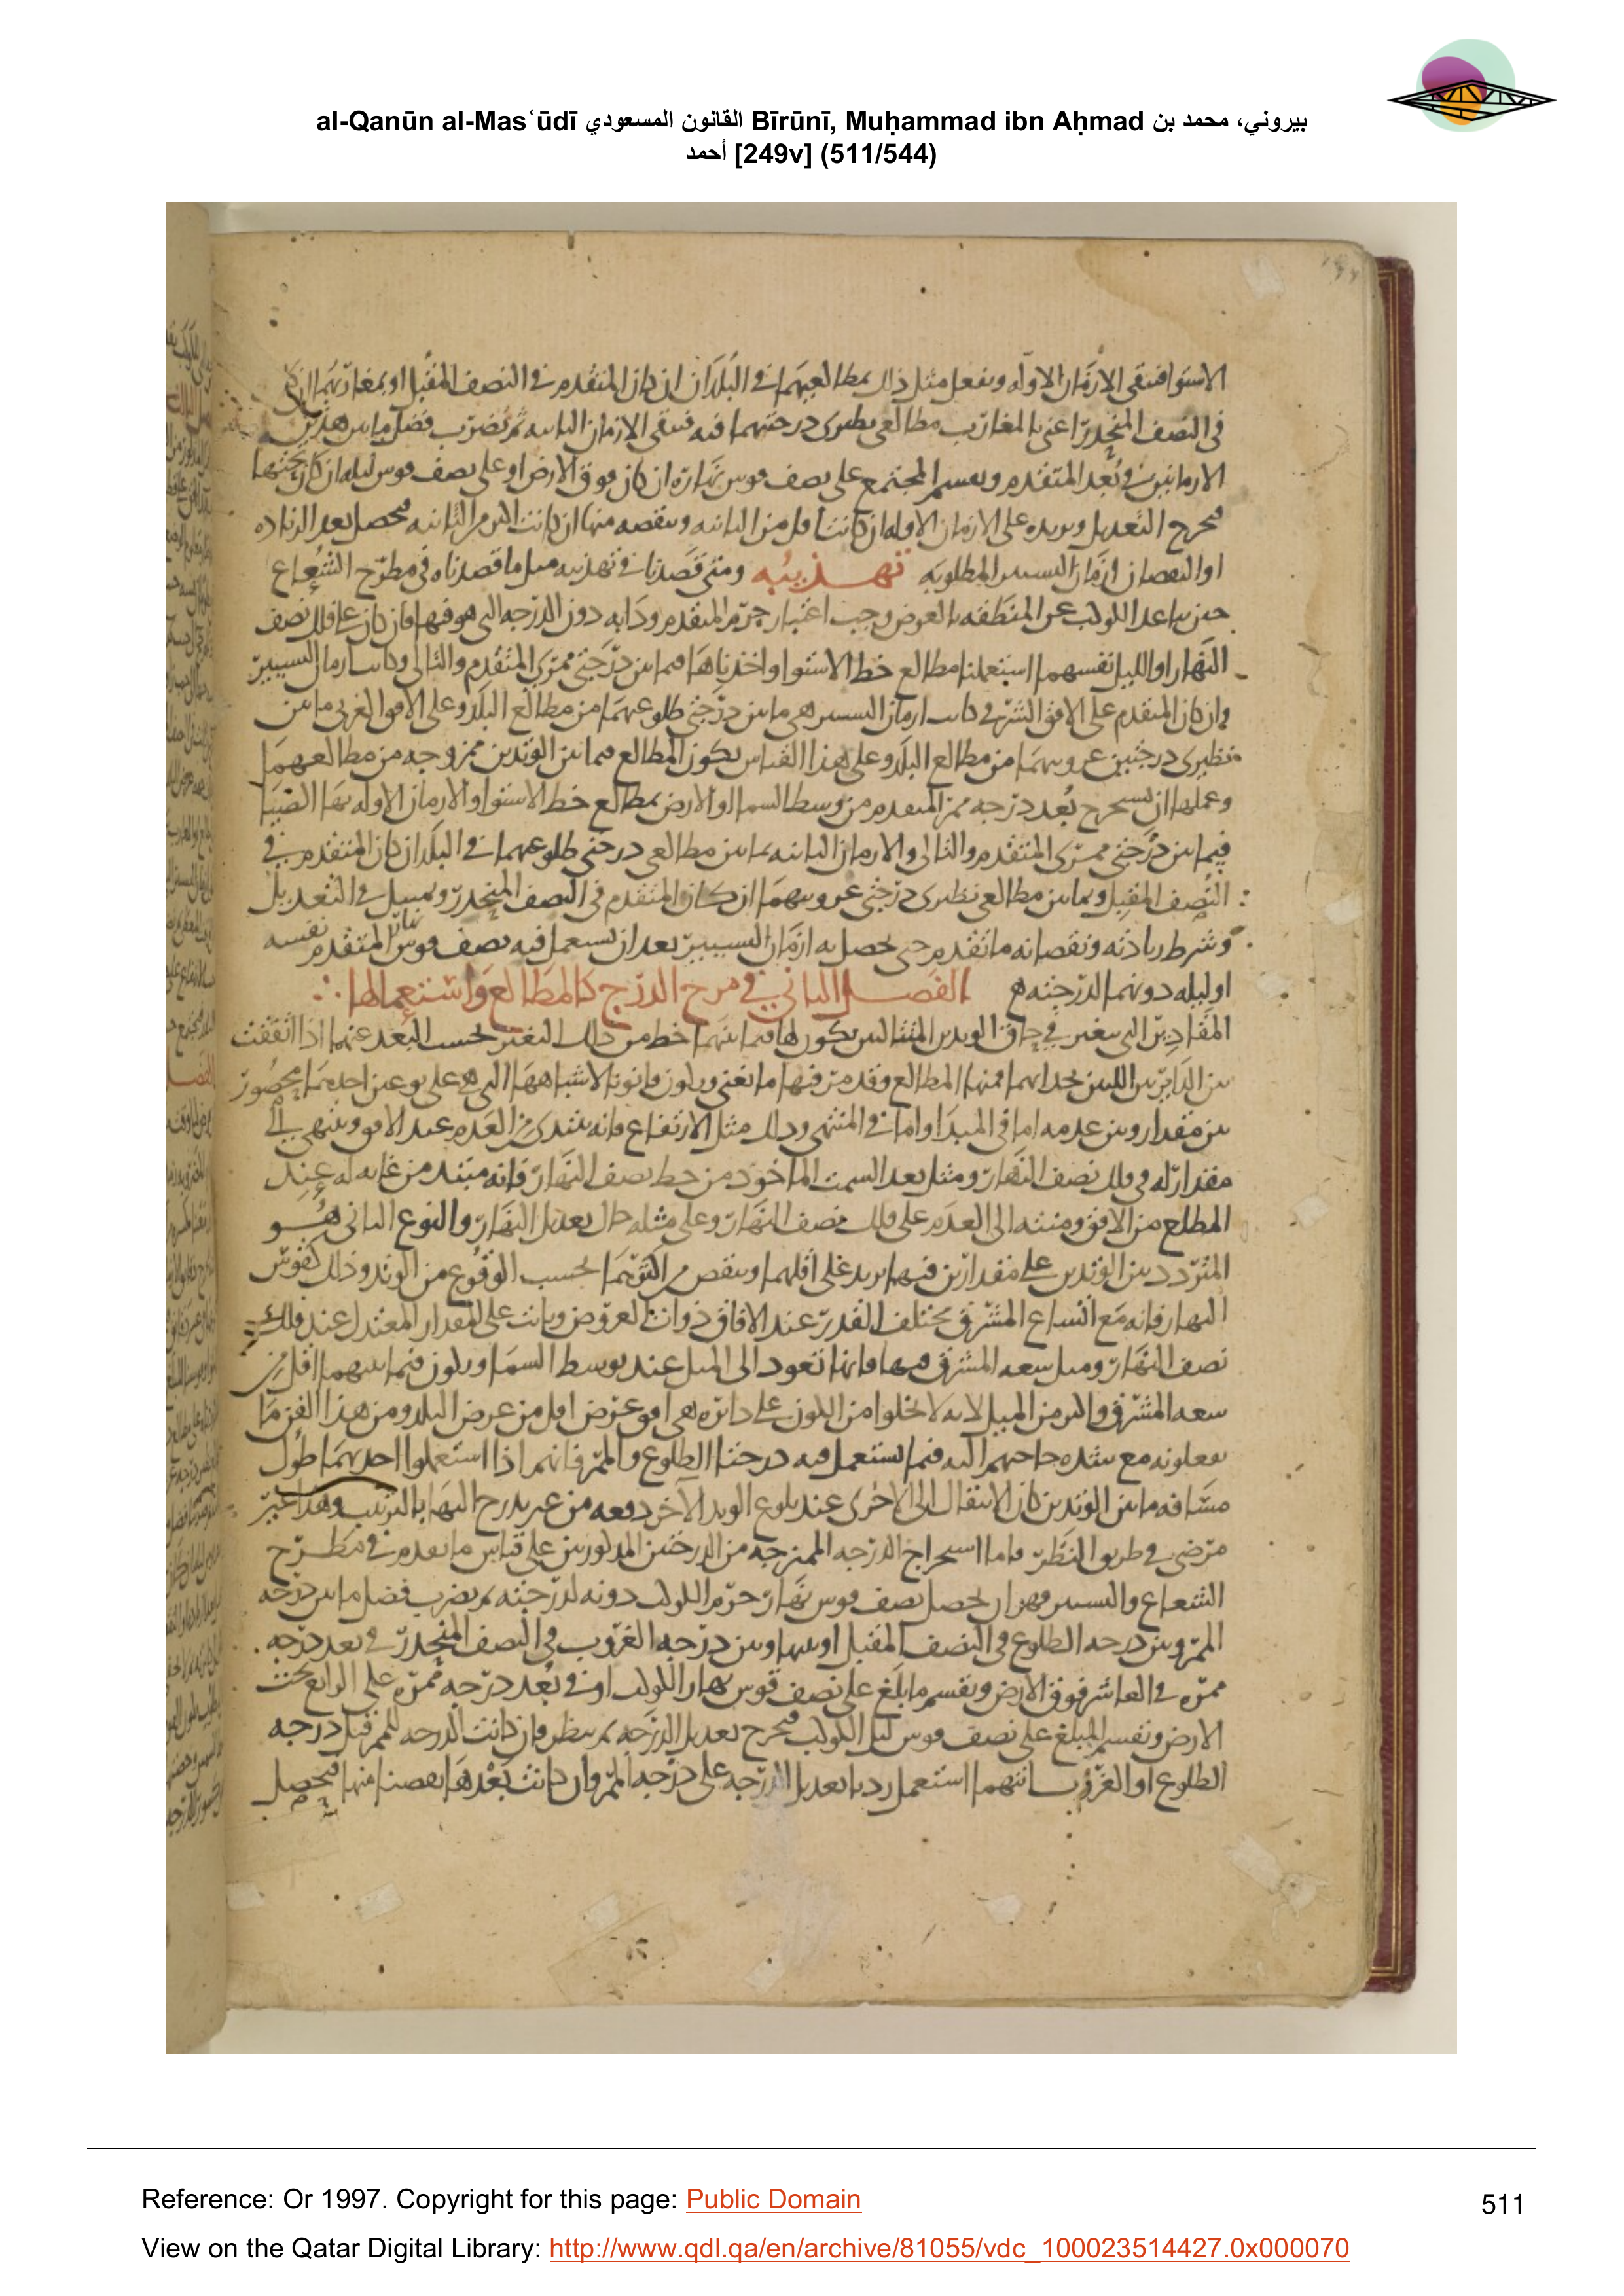 al-Qanūn al-Masʿūdī القانون المسعودي Bīrūnī, Muḥammad ibn Aḥmad بيروني، محمد بن
أحمد [249v] (511/544)
الاستوا فتبقى الازمان الاوله ونفعل مثل ذلك بمطالعيهما في البلد ان كان المتقدم في النصف المقبل او بمغاربهما ان كان
في النصف المنحدر اعني بالمغارب مطالعي نظيري درجتيهما فيه فتبقى الازمان الثانيه ثم نضرب فضل ما بين هذين
الازمانين في بعد المتقدم ونقسم المجتمع على نصف قوس نهاره ان كان فوق الارض او على نصف قوس ليله ان كان تحتها
فيخرج التعديل ونزيده على الازمان الاوله ان كانت اقل من الثانيه وننقصه منها ان كانت اكثر من الثانيه فيحصل بعد الزياده
او النقصان ازمان التسيير المطلوبه تهذيبه ومتى قصدنا في تهذيبه مثل ما قصدناه في مطرح الشعاع
حين تباعد الكوكب عن المنطقه بالعرض وجب اعتبار جرم المتقدم وذاته دون الدرجه التي هو فيها فان كان على فلك نصف
النهار او الليل نفسهما استعملنا مطالع خط الاستوا واخذناها فيما بين درجتي ممري المتقدم والتالي وكانت ازمان التسيير
وان كان المتقدم على الافق الشرقي كانت ازمان التسيير هي ما بين درجتي طلوعهما من مطالع البلد وعلى الافق الغربي ما بين
نظيري درجتين غروبهما من مطالع البلد وعلى هذا القياس يكون المطالع فيما بين الوتدين ممزوجه من مطالعهما
وعملها ان نستخرج بعد درجه ممر المتقدم من وسط السما او الارض بمطالع خط الاستوا والازمان الاوله بها ايضا
فيما بين درجتي ممري المتقدم والتالي والازمان الثانيه بما بين مطالعي درجتي طلوعهما في البلد ان كان المتقدم في
النصف المقبل وبما بين مطالعي نظيري درجتي غروبهما ان كان المتقدم في النصف المنحدر ونمتثل في التعديل
وشرط زيادته ونقصانه ما تقدم حتى يحصل به ازمان التسيير بعد ان نستعمل فيه نصف قوس نهار المتقدم نفسه
او ليله دونهما لدرجته الفصل الثاني في مزج الدرج كالمطالع واستعمالها
المقادير التي تتغير في الوتدين المتتاليين يكون لها فيما بينهما خط من ذلك التغير بحسب البعد عنهما اذا اتفقت
بين الدايرتين اللتين تحدانهما فمنها المطالع وقد مر فيها ما يغني ويكون قانونا لاشباهها التي هي على نوعين احدهما محصور
بين مقدار وبين عدمه اما في المبدا واما في المنتهى وذلك مثل الارتفاع فانه يبتدي من العدم عند الافق وينتهي الى
مقدار له في فلك نصف النهار ومثل بعد السمت الماخوذ من خط نصف النهار فانه مبتد من غايه له عند
المطلع من الافق ومنته الى العدم على فلك نصف النهار وعلى مثله حال تعديل النهار والنوع الثاني هو
المتردد بين الوتدين على مقدارين فيهما يزيد على اقلهما وينقص من اكثرهما بحسب الوقوع من الوتد وذلك كقوس
النهار فانه مع اتساع المشرق مختلف القدر عند الافاق ذوات العروض وثابت على المقدار المعتدل عند فلك
نصف النهار ومثل سعه المشرق فيها فانها تعود الى الميل عند توسط السما ويكون فيما بينهما اقل من
سعه المشرق واكثر من الميل لانه لا يخلوا من الكون على دايره هي افق عرض اقل من عرض البلد ومن هذا الفن ما
يفعلونه مع شده حاجتهم اليه فيما يستعمل فيه درجتا الطلوع والممر فانهم اذا استعملوا احديهما طول
مسافه ما بين الوتدين كان الانتقال الى الاخرى عند بلوغ الوتد الاخر دفعه من غير تدرج اليها بالترتيب وهذا غير
مرضي في طريق النظر واما استخراج الدرجه الممتزجه من الدرجتين المذكورتين على قياس ما تقدم في مطرح
الشعاع والتسيير فهو ان يحصل نصف قوس نهار جرم الكوكب دونه لدرجته ثم يضرب فضل ما بين درجه
الممر وبين درجه الطلوع في النصف المقبل او بينها وبين درجه الغروب في النصف المنحدر في بعد درجه
ممره في العاشر فوق الارض ونقسم ما بلغ على نصف قوس نهار الكوكب او في بعد درجه ممره على الرابع تحت
الارض ونقسم المبلغ على نصف قوس ليل الكوكب فيخرج تعديل الدرجه ثم ينظر فان كانت الدرجه للممر قبل درجه
الطلوع او الغروب ايتهما استعمل زدنا تعديل الدرجه على درجه الممر وان كانت بعدها نقصنا منها فيحصل
Reference: Or 1997. Copyright for this page: Public Domain
511
View on the Qatar Digital Library: http://www.qdl.qa/en/archive/81055/vdc_100023514427.0x000070